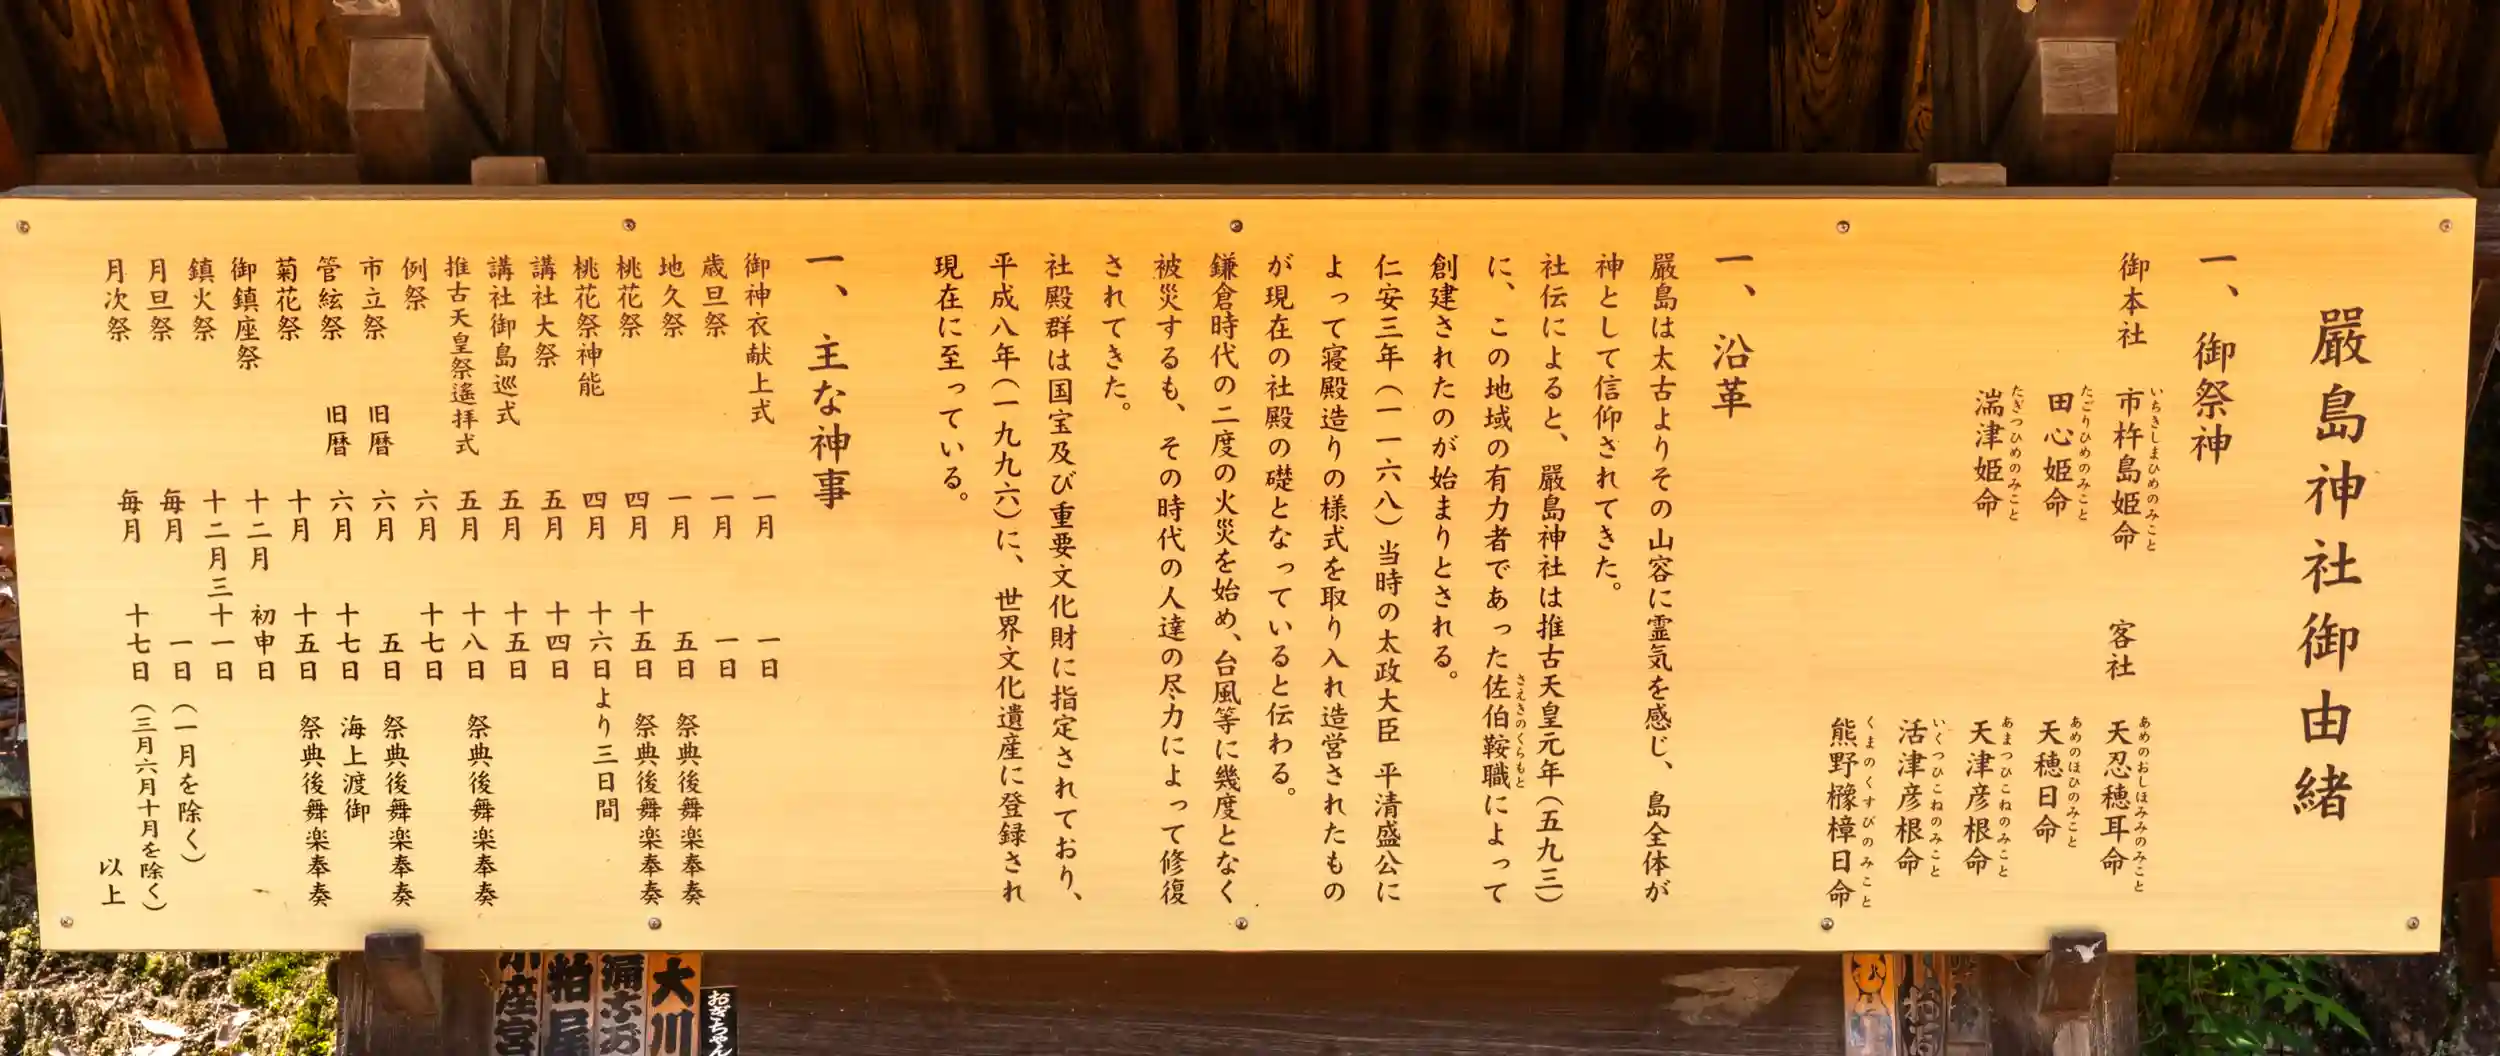 嚴島神社御由緒
一、御祭神
御本社 市杵島姫命 客社 天忍穂耳命
いちきしまひめのみこと あめのおしほみみのみこと
田心姫命 天穂日命
たごりひめのみこと あめのほひのみこと
湍津姫命 天津彦根命
たぎつひめのみこと あまつひこねのみこと
活津彦根命
いくつひこねのみこと
熊野櫲樟日命
くまのくすびのみこと
一、沿革
嚴島は太古よりその山容に霊気を感じ、島全体が
神として信仰されてきた。
社伝によると、嚴島神社は推古天皇元年(五九三)
に、この地域の有力者であった佐伯鞍職によって
さえきのくらもと
創建されたのが始まりとされる。
仁安三年(一一六八)当時の太政大臣 平清盛公に
よって寝殿造りの様式を取り入れ造営されたもの
が現在の社殿の礎となっていると伝わる。
鎌倉時代の二度の火災を始め、台風等に幾度となく
被災するも、その時代の人達の尽力によって修復
されてきた。
社殿群は国宝及び重要文化財に指定されており、
平成八年(一九九六)に、世界文化遺産に登録され
現在に至っている。
一、主な神事
御神衣献上式 一月 一日
歳旦祭 一月 一日
地久祭 一月 五日 祭典後舞楽奉奏
桃花祭 四月 十五日 祭典後舞楽奉奏
桃花祭神能 四月 十六日より三日間
講社大祭 五月 十四日
講社御島巡式 五月 十五日
推古天皇祭遙拝式 五月 十八日 祭典後舞楽奉奏
例祭 六月 十七日
市立祭 旧暦 六月 五日 祭典後舞楽奉奏
管絃祭 旧暦 六月 十七日 海上渡御
菊花祭 十月 十五日 祭典後舞楽奉奏
御鎮座祭 十二月 初申日
鎮火祭 十二月三十一日
月旦祭 毎月 一日(一月を除く)
月次祭 毎月 十七日(三月六月十月を除く)
以上
おぎちゃん
大川
粕屋
産宮